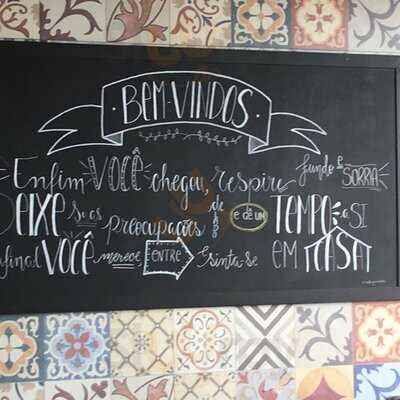 BEM-VINDOS
Enfim VOCÊ chegou, respire fundo e SORRIA
DEIXE suas preocupações de LADO e dê um TEMPO a SI
afinal VOCÊ merece ENTRE sinta-se EM CASA!